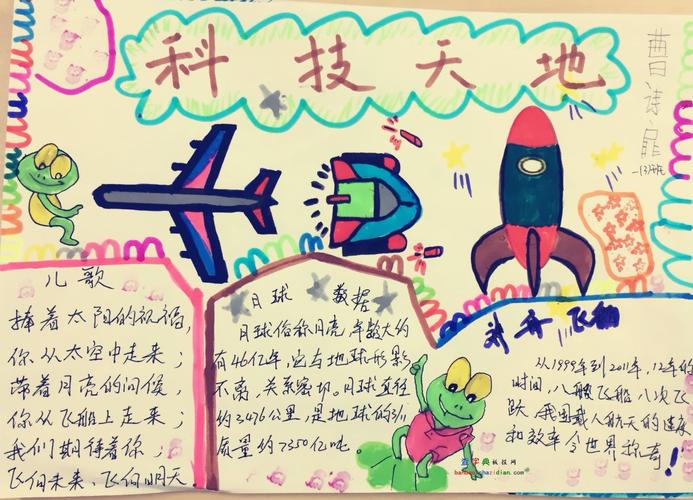 科技天地
曹诗
一(3)班
儿歌
捧着太阳的祝福,
你从太空中走来;
带着月亮的问候,
你从飞船上走来;
我们期待着你;
飞向未来、飞向明天
月球 数据
月球俗称月亮,年数大约
有46亿年,它与地球形影
不离,关系密切。月球直径
约3476公里,是地球的3/11
质量约7350亿吨。
神舟飞船
从1999年到2011年,12年的
时间,八艘飞船八次飞
跃,我国载人航天的速度
和效率令世界称奇!
查字典板报网
banbao.chazidian.com